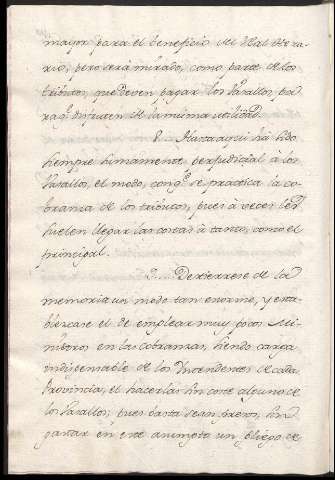 mayor para el beneficio del Real Hera-
rio, pero será mirado, como parte de los
tributos, que deven pagar los Vasallos, pa-
ra q.e disfruten de la misma utilidad.
8... Hasta aqui há sido
siempre sumamente perjudicial á los
Vasallos, el modo, con q.e se practíca la co-
branza de los tributos, pues á veces les
suelen llegar las costas á tanto, como el
principal.
9... Destierrese de la
memoria un modo tan enorme, y esta-
blezcase el de emplear muy pocos Mi-
nistros en las cobranzas, siendo carga
indispensable de los Intendentes de cada
Provincia, el hacerlas sin coste alguno de
los Vasallos; pues basta sean presos, sin
gastar en este asumpto un pliego de